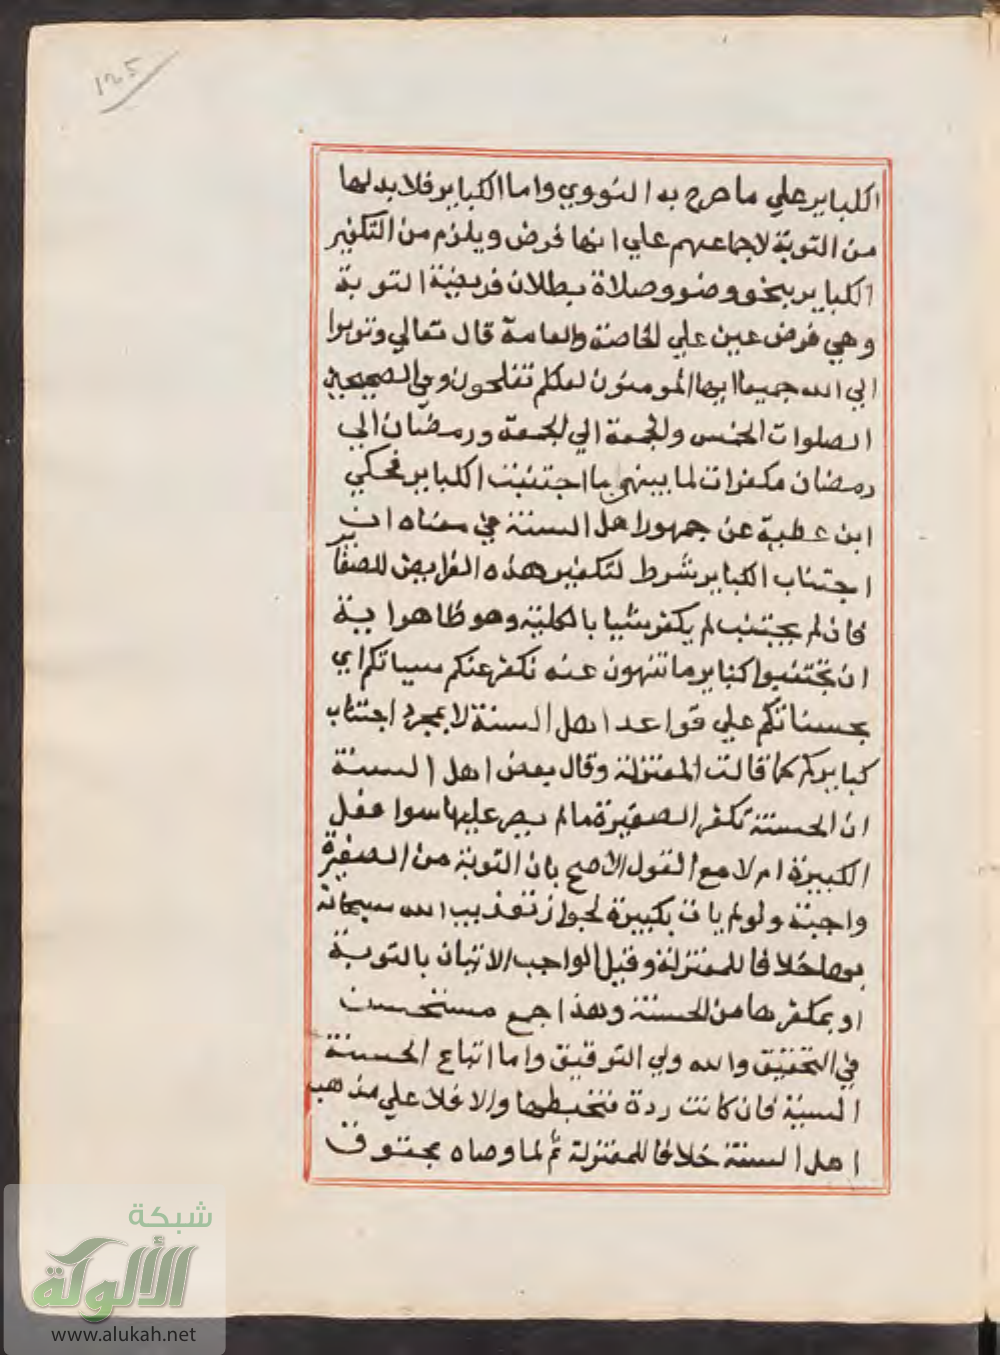 ١٢٥
الكباير علي ما صرح به النووي واما الكباير فلا بد لها
من التوبة لاجماعهم علي انها فرض ويلزم من التكفير
الكباير بنحو وضو وصلاة بطلان فريضية التوبة
وهي فرض عين علي الخاصة والعامة قال تعالي وتوبوا
الي الله جميعا ايها المومنون لعلكم تفلحون وفي الصحيحين
الصلوات الخمس والجمعة الي الجمعة ورمضان الي
رمضان مكفرات لما بينهن ما اجتنبت الكباير فحكي
ابن عطية عن جمهور اهل السنة في معناه ان
اجتناب الكباير شرط لتكفير هذه الفرايض للصغاير
فان لم يجتنب لم يكفر شيا بالكلية وهو ظاهر اية
ان تجتنبوا كباير ما تنهون عنه نكفر عنكم سياتكم اي
بحسناتكم علي قواعد اهل السنة لا بمجرد اجتناب
كبايركم كما قالت المعتزلة وقال بعض اهل السنة
ان الحسنة تكفر الصغيرة ما لم يصر عليها سوا فعل
الكبيرة ام لا مع القول الاصح بان التوبة من الصغيرة
واجبة ولو لم يات بكبيرة لجواز تعذيب الله سبحانه
بها خلافا للمعتزلة وقيل الواجب الاتيان بالتوبة
او بمكفرها من الحسنة وهذا جمع مستحسن
في التحقيق والله ولي التوفيق واما اتباع الحسنة
السيية فان كانت ردة فتحبطها والا فلا علي مذهب
اهل السنة خلافا للمعتزلة ثم لما وصاه بحقوق
شبكة
الألوكة
www.alukah.net